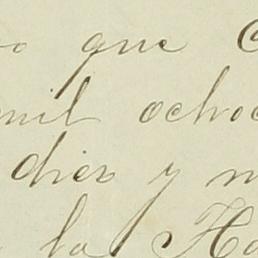 que
mil ocho
diez y
la Ha